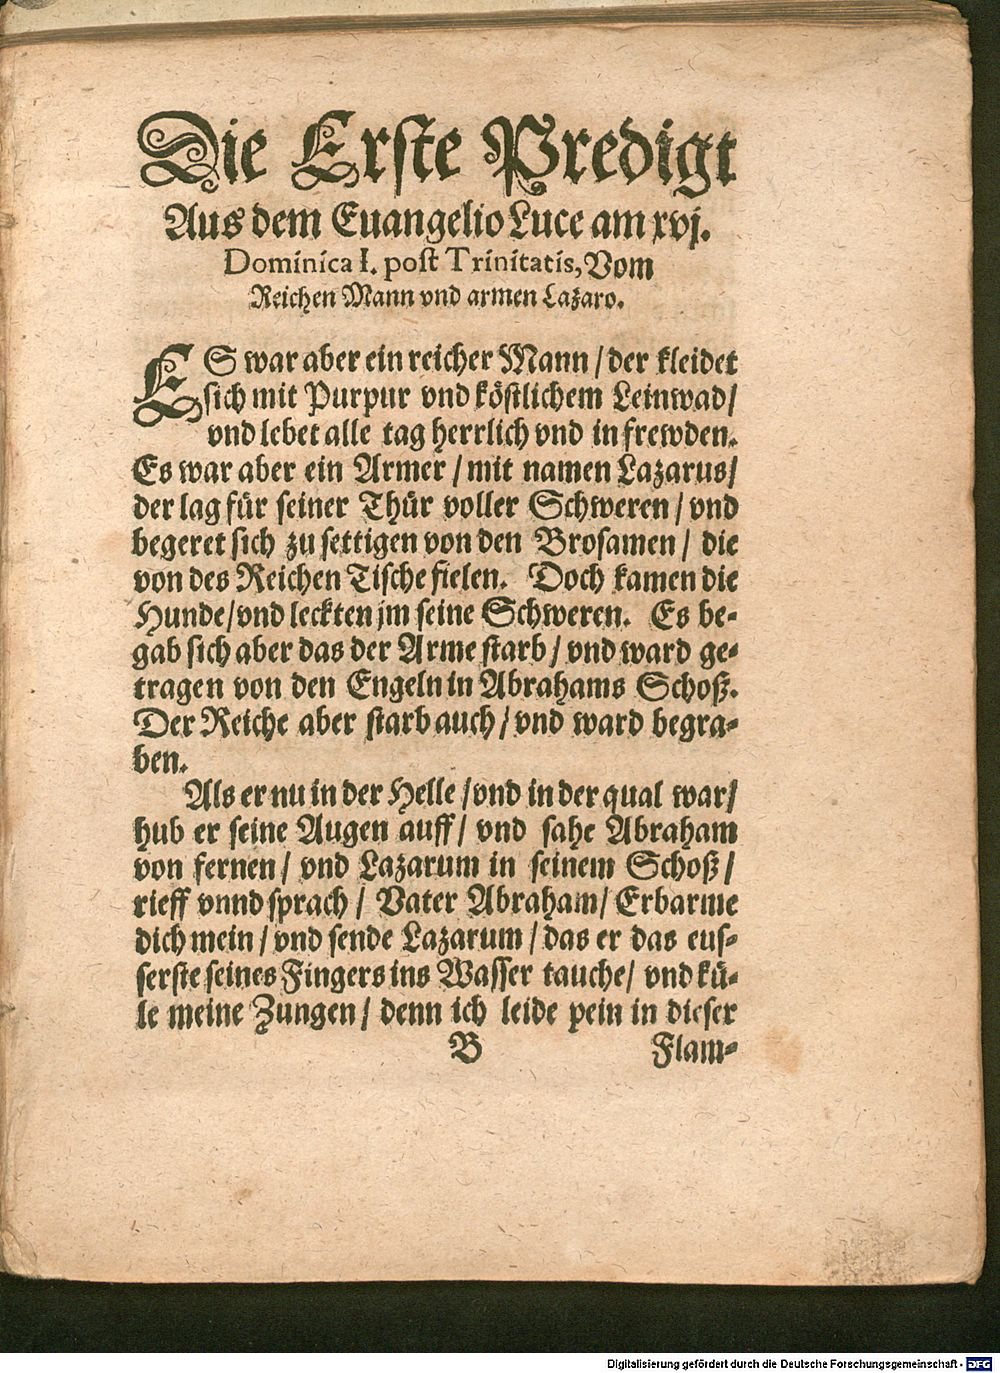 Die Erste Predigt
Aus dem Euangelio Luce am xvj.
Dominica I. post Trinitatis, Vom
Reichen Mann vnd armen Lazaro.
ES war aber ein reicher Mann / der kleidet
sich mit Purpur vnd köstlichem Leinwad /
vnd lebet alle tag herrlich vnd in frewden.
Es war aber ein Armer / mit namen Lazarus /
der lag für seiner Thür voller Schweren / vnd
begeret sich zu settigen von den Brosamen / die
von des Reichen Tische fielen. Doch kamen die
Hunde / vnd leckten jm seine Schweren. Es be-
gab sich aber das der Arme starb / vnd ward ge-
tragen von den Engeln in Abrahams Schoß.
Der Reiche aber starb auch / vnd ward begra-
ben.
Als er nu in der Helle / vnd in der qual war /
hub er seine Augen auff / vnd sahe Abraham
von fernen / vnd Lazarum in seinem Schoß /
rieff vnnd sprach / Vater Abraham / Erbarme
dich mein / vnd sende Lazarum / das er das eus-
serste seines Fingers ins Wasser tauche / vnd kü-
le meine Zungen / denn ich leide pein in dieser
B Flam-
Digitalisierung gefördert durch die Deutsche Forschungsgemeinschaft - DFG